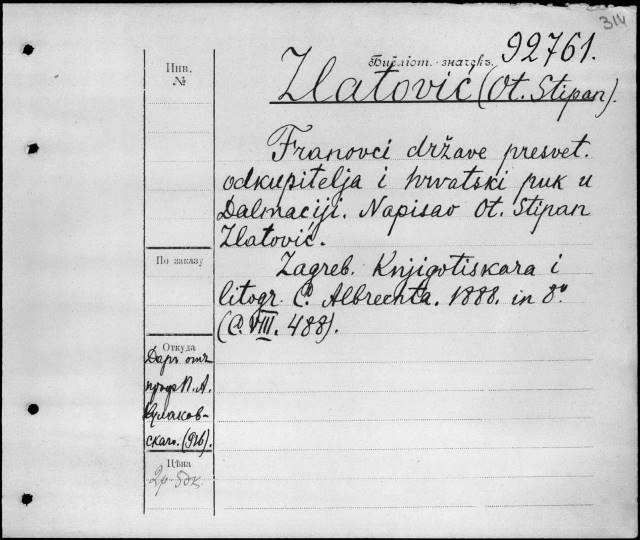 314
Инв.
№
Библіот. значекъ.
92761.
Zlatović (Ot. Stipan).
Franovci države presvet.
odkupitelja i hrvatski puk u
Dalmaciji. Napisao Ot. Stipan
Zlatović.
Zagreb. Knjigotiskara i
litogr. C. Albrechta. 1888. in 8º
(C. VIII. 488).
По заказу
Откуда
Даръ отъ
проф. П. А.
скаго. (916).
Цѣна
2р.